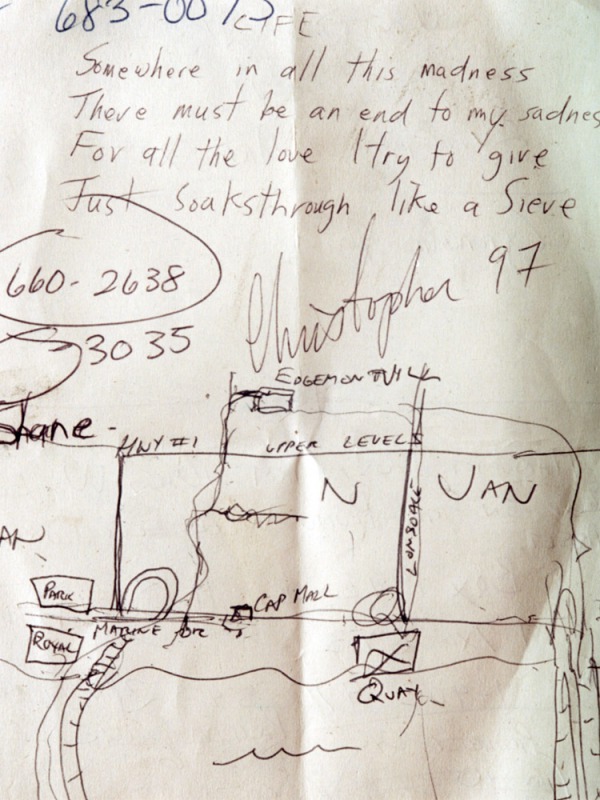 683-0075
LIFE
Somewhere in all this madness
There must be an end to my sadnes
For all the love I try to give
Just soaksthrough like a Sieve
660-2638
Christopher 97
3035
EDGEMONTVILL
Shane -
HWY #1 UPPER LEVELS
N VAN
LONSDALE
AN
PARK
CAP MALL
ROYAL
MARINE DR
QUAY